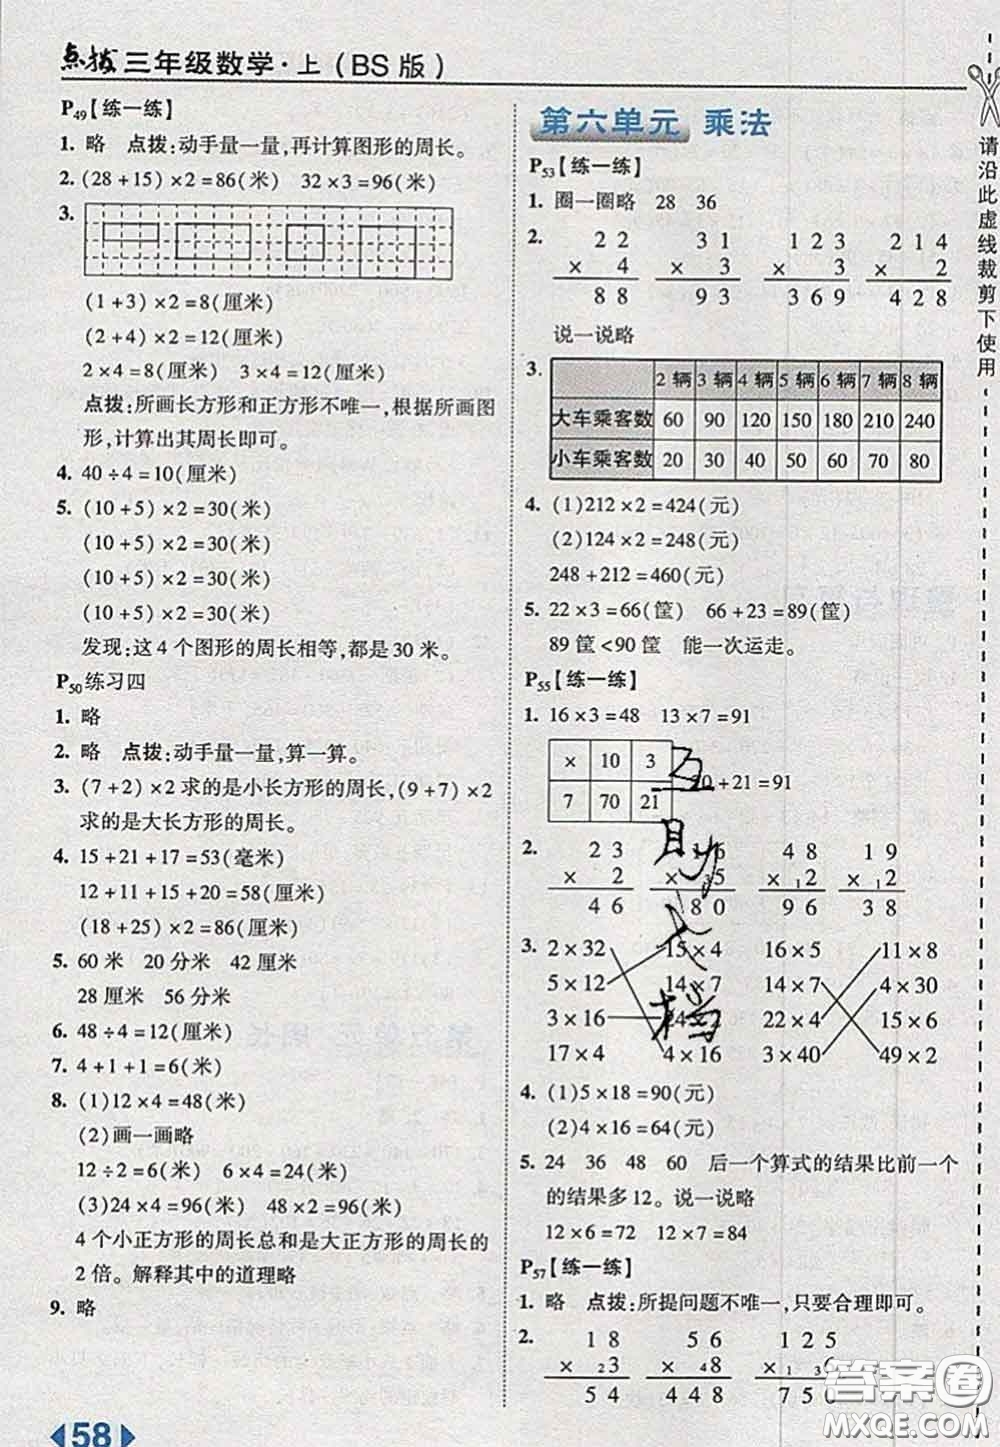 点拨 三年级数学·上(BS版)
P49【练一练】
1. 略 点拨:动手量一量,再计算图形的周长。
2. (28+15)×2=86(米) 32×3=96(米)
3.
(1+3)×2=8(厘米)
(2+4)×2=12(厘米)
2×4=8(厘米) 3×4=12(厘米)
点拨:所画长方形和正方形不唯一,根据所画图
形,计算出其周长即可。
4. 40÷4=10(厘米)
5. (10+5)×2=30(米)
(10+5)×2=30(米)
(10+5)×2=30(米)
(10+5)×2=30(米)
发现:这4个图形的周长相等,都是30米。
P50练习四
1. 略
2. 略 点拨:动手量一量,算一算。
3. (7+2)×2求的是小长方形的周长,(9+7)×2
求的是大长方形的周长。
4. 15+21+17=53(毫米)
12+11+15+20=58(厘米)
(18+25)×2=86(厘米)
5. 60米 20分米 42厘米
28厘米 56分米
6. 48÷4=12(厘米)
7. 4+1+1=6(米)
8. (1)12×4=48(米)
(2)画一画略
12÷2=6(米) 6×4=24(米)
(3)24×4=96(米) 48×2=96(米)
4个小正方形的周长总和是大正方形的周长的
2倍。解释其中的道理略
9. 略
58
第六单元 乘法
P53【练一练】
1. 圈一圈略 28 36
2. 22 31 123 214
× 4 × 3 × 3 × 2
88 93 369 428
说一说略
3. 2辆 3辆 4辆 5辆 6辆 7辆 8辆
大车乘客数 60 90 120 150 180 210 240
小车乘客数 20 30 40 50 60 70 80
4. (1)212×2=424(元)
(2)124×2=248(元)
248+212=460(元)
5. 22×3=66(筐) 66+23=89(筐)
89筐<90筐 能一次运走
P55【练一练】
1. 16×3=48 13×7=91
× 10 3
7 70 21
+21=91
2. 23 16 48 19
× 2 ×35 ×12 ×12
46 80 96 38
3. 2×32 15×4 16×5 11×8
5×12 14×7 14×7 20×6
3×16 24×2 22×4 15×6
17×4 4×16 3×40 49×2
4. (1)5×18=90(元)
(2)4×16=64(元)
5. 24 36 48 60 后一个算式的结果比前一个
的结果多12。说一说略
12×6=72 12×7=84
P57【练一练】
1. 略 点拨:所提问题不唯一,只要合理即可。
2. 18 56 125
× 23 × 48 × 1 36
54 448 750
请沿此虚线裁剪下使用
互助文档
答案圈
MXQE.COM